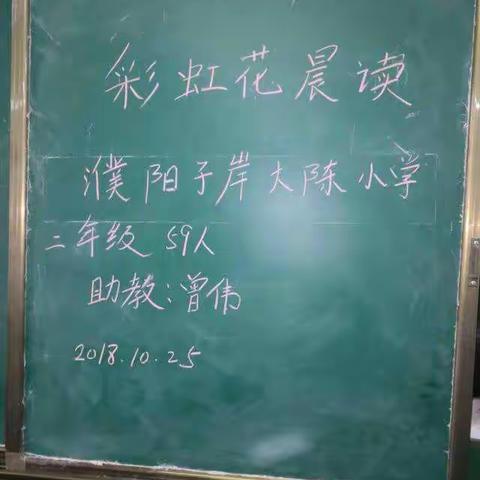 彩虹花晨读
濮阳子岸大陈小学
二年级 59人
助教:曾伟
2018.10.25